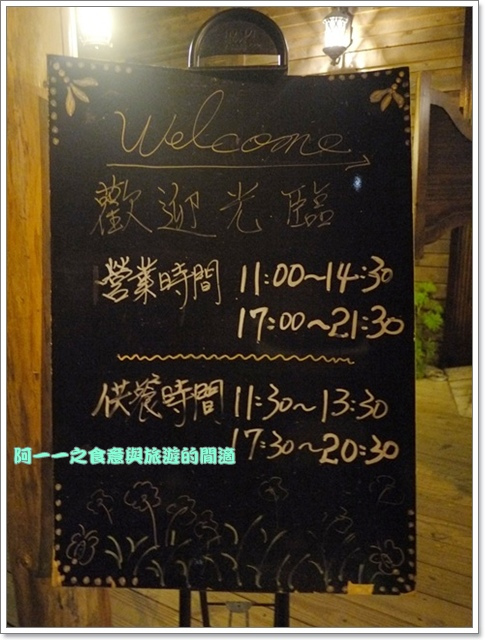 Welcome
歡迎光臨
營業時間 11:00~14:30
17:00~21:30
供餐時間 11:30~13:30
17:30~20:30
阿一一之食意與旅遊的閒適